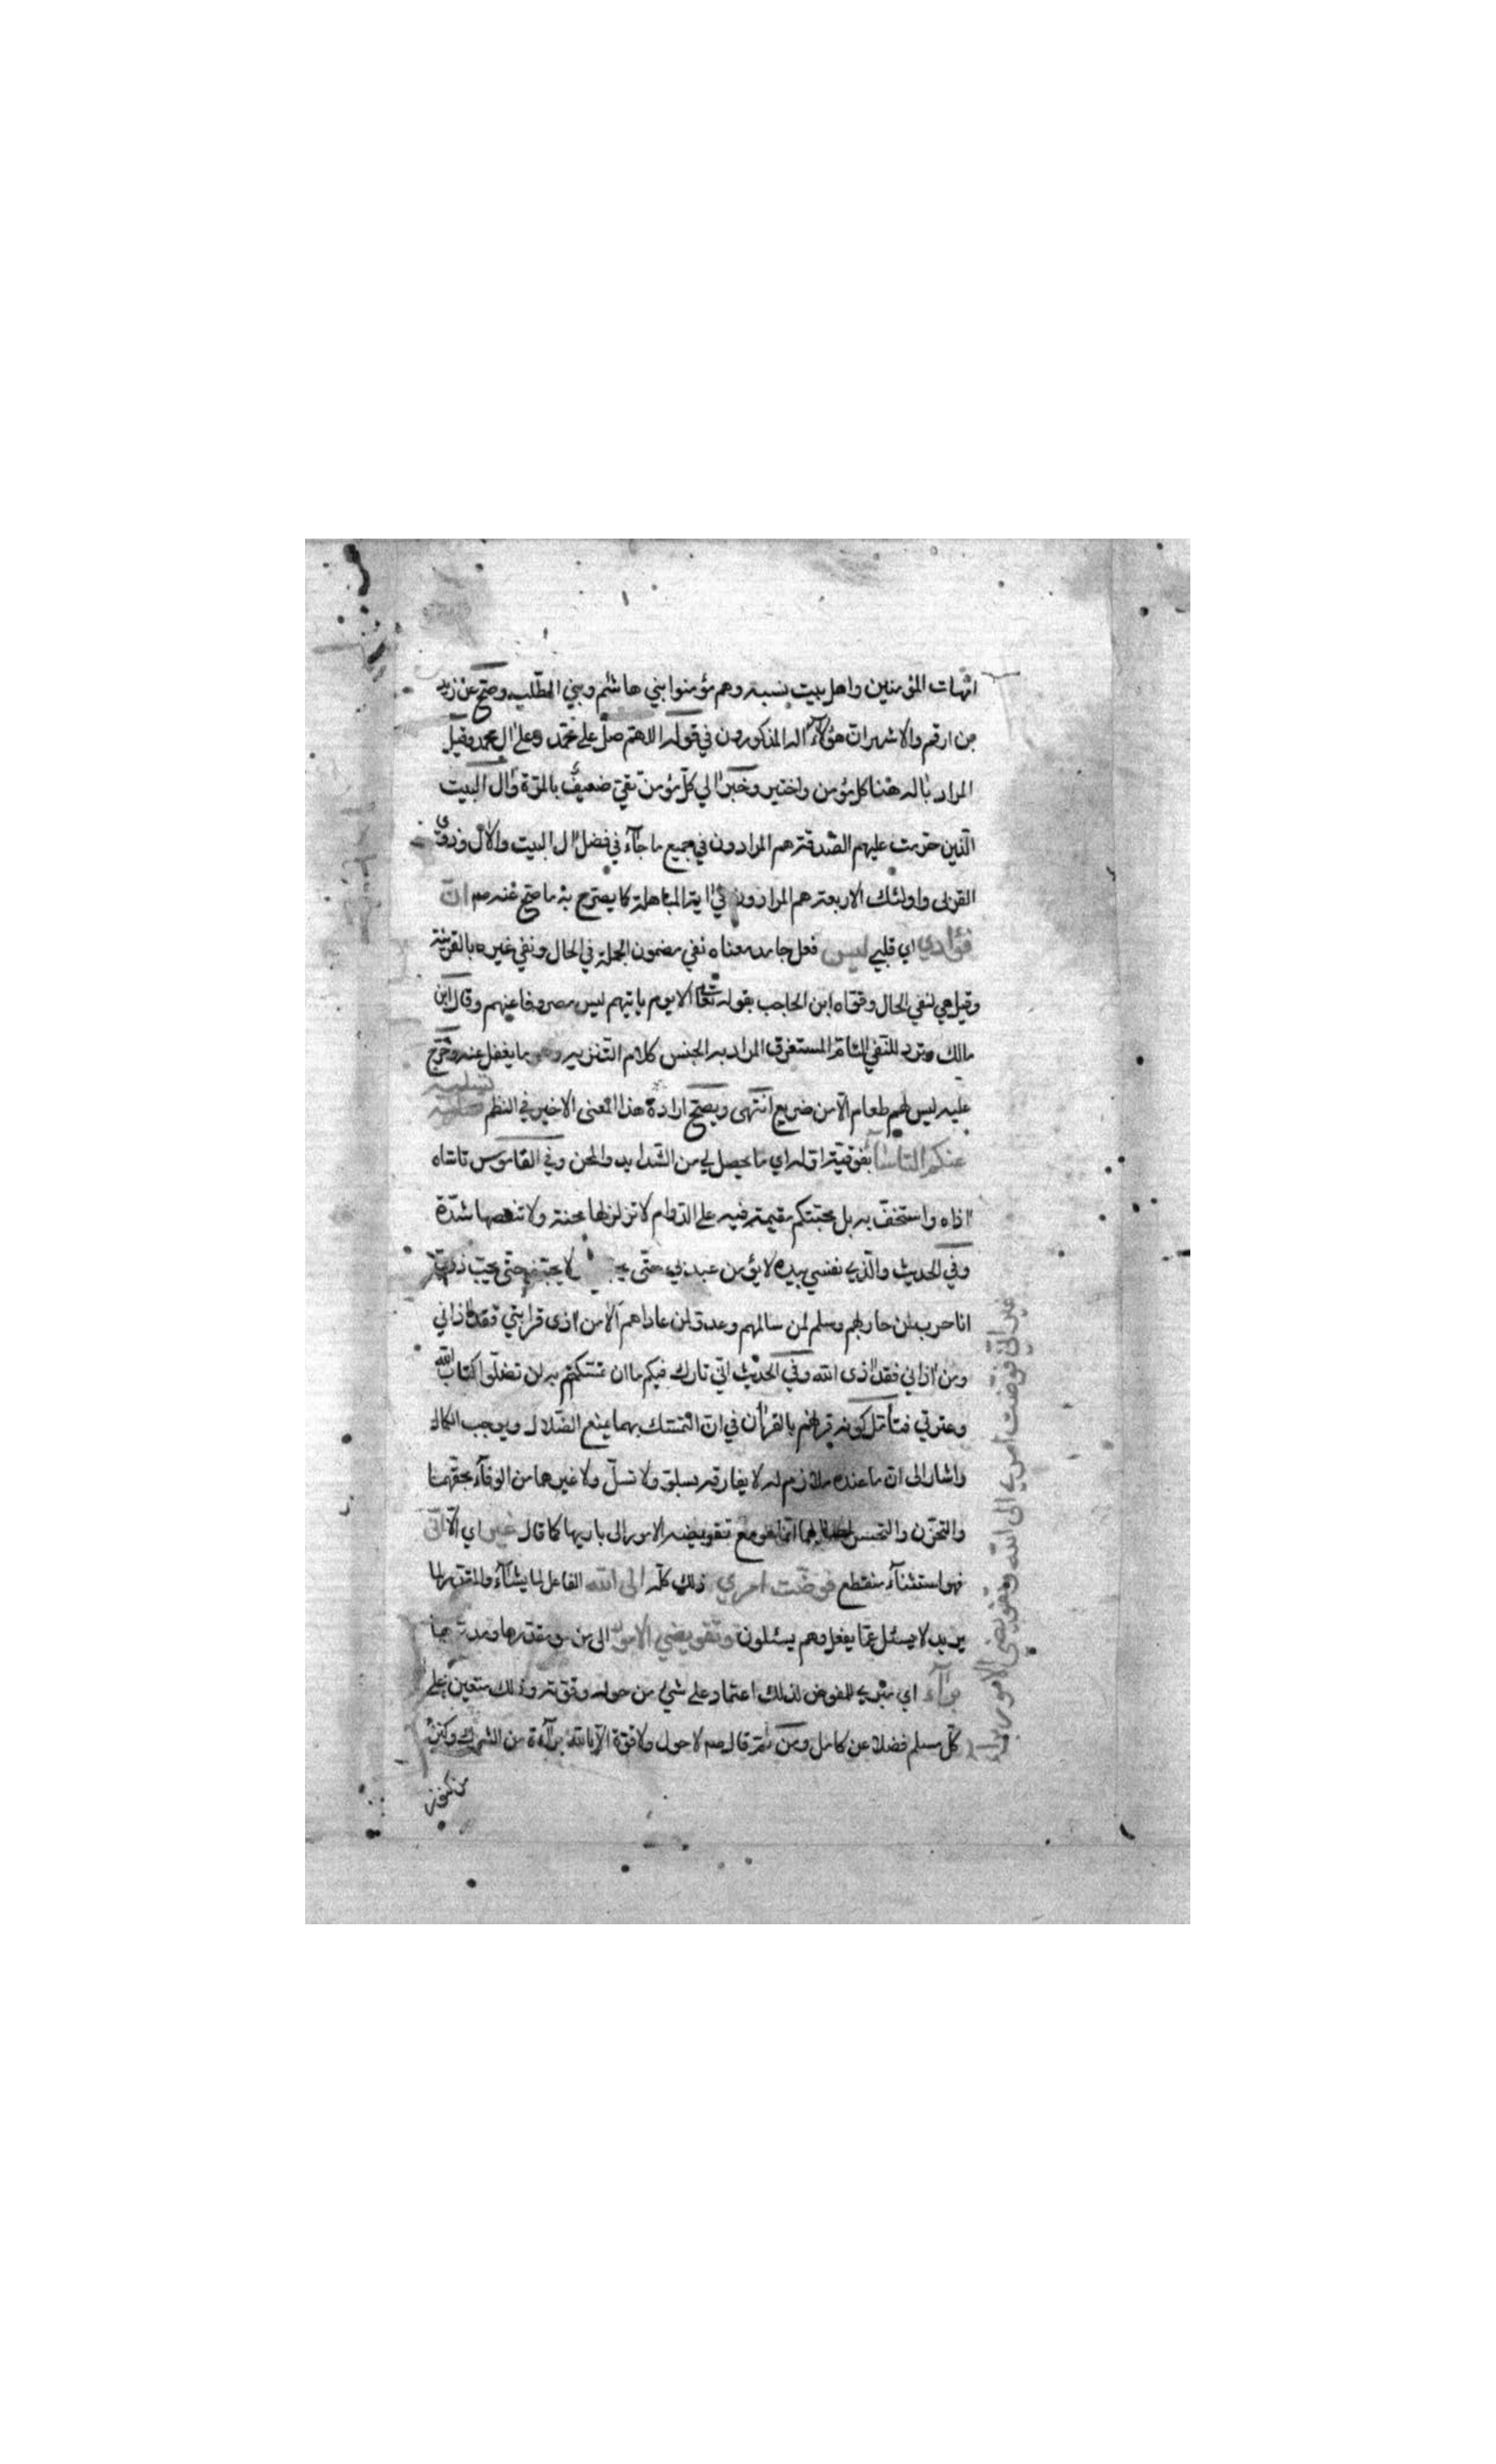 امهات المؤمنين واهل بيت نسبه وهم مؤمنوا بني هاشم وبني المطلب وصح عن زيد
بن ارقم والاشهر ان هؤلاء اله المذكورون في قوله اللهم صل على محمد وعلى ال محمد وقيل
المراد باله هنا كل مؤمن واختير وخبر الي كل مؤمن تقي ضعيف بالمرة وال البيت
الذين حرمت عليهم الصدقة هم المرادون في جميع ما جاء في فضل ال البيت والال وذوى
القربى واولئك الاربعة هم المرادون في اية المباهلة كما يصرح به ما صح عنه صم ان
فؤادي اي قلبي ليس فعل جامد معناه نفي مضمون الجملة في الحال ونفي غيره بالقرينة
وقيل هي لنفي الحال وقواه ابن الحاجب بقوله تعا الا يوم ياتيهم ليس مصروفا عنهم وقال ابن
مالك وترد للنفي العام المستغرق المراد به الجنس كلام التنزيه وهو ما يغفل عنه وخرج
عليه ليس لهم طعام الا من ضريع انتهى ويصح ارادة هذا المعنى الاخير في النظم تسليه
عنكم التاساء بفوقية اوله اي ما يحصل لي من الشدايد والمحن وفي القاموس تاساه
اذاه واستخف به بل محبتكم مقيمة فيه على الدوام لا تزلزلها محنة ولا تنقصها شدة
وفي الحديث والذي نفسي بيده لا يؤمن عبد بي حتى يحبني ولا يحبني حتى يحب ذوي
انا حرب لمن حاربهم وسلم لمن سالمهم وعدو لمن عاداهم الا من اذى قرابتي فقد اذاني
ومن اذاني فقد اذى الله وفي الحديث اني تارك فيكم ما ان تمسكتم به لن تضلوا كتاب الله
وعترتي فتأمل كونه قرنهم بالقرأن في ان التمسك بهما يمنع الضلال ويوجب الكمال
واشار الى ان ما عنده ملازم له لا يفارقه بسلو ولا تسل ولا غيرهما من الوفاء بحقهما
والتحزن والتحسر انما هو مع تفويضه الامور الى باريها كما قال غير اي الا اني
فهو استثناء منقطع فوضت امري ذلك كله الى الله الفاعل لما يشاء والمقدر لما
يريد لا يسئل عما يفعل وهم يسئلون وتفويضي الامور الى من هو مقدرها ومدبرها
براء اي مبرئ للمفوض لذلك اعتماد على شئ من حوله وقوته وذلك متعين على
كل مسلم فضلا عن كامل ومن ثمة قال صم لا حول ولا قوة الا بالله براءة من الشرك وكنز
من كنوز
غير اني فوضت امري الى الله وتفويضي الامور براء